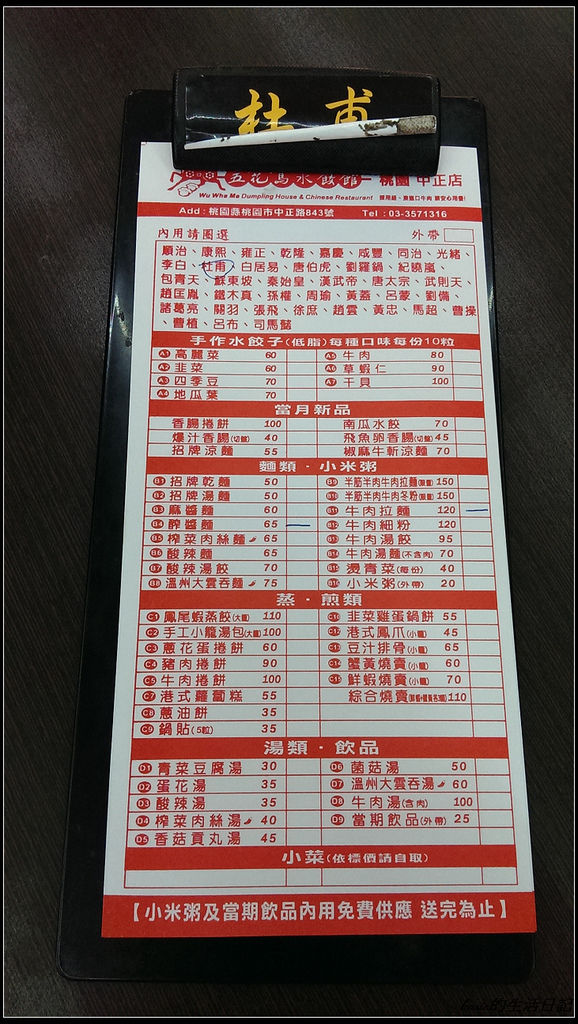 杜甫
五花馬水餃館 桃園 中正店
Wu Wha Ma Dumpling House & Chinese Restaurant
Add：桃園縣桃園市中正路843號 Tel：03-3571316
內用請圈選 外帶
順治、康熙、雍正、乾隆、嘉慶、咸豐、同治、光緒、
李白、杜甫、白居易、唐伯虎、劉羅鍋、紀曉嵐、
包青天、蘇東坡、秦始皇、漢武帝、唐太宗、武則天、
趙匡胤、鐵木真、孫權、周瑜、黃蓋、呂蒙、劉備、
諸葛亮、關羽、張飛、徐庶、趙雲、黃忠、馬超、曹操
、曹植、呂布、司馬懿
手作水餃子(低脂)每種口味每份10粒
A1 高麗菜 60 A5 牛肉 80
A2 韭菜 60 A6 草蝦仁 90
A3 四季豆 70 A7 干貝 100
A4 地瓜葉 70
當月新品
香腸捲餅 100 南瓜水餃 70
爆汁香腸(切盤) 40 飛魚卵香腸(切盤) 45
招牌涼麵 55 椒麻牛斬涼麵 70
麵類．小米粥
B1 招牌乾麵 50 B9 半筋半肉牛肉拉麵 150
B2 招牌湯麵 50 B10 半筋半肉牛肉冬粉 150
B3 麻醬麵 60 B11 牛肉拉麵 120
B4 酢醬麵 65 B12 牛肉細粉 120
B5 榨菜肉絲麵 65 B13 牛肉湯餃 95
B6 酸辣麵 65 B14 牛肉湯麵(不含肉) 70
B7 酸辣湯餃 70 B15 燙青菜(每份) 40
B8 溫州大雲吞麵 75 B16 小米粥(外帶) 20
蒸．煎類
C1 鳳尾蝦蒸餃(大籠) 110 C10 韭菜雞蛋鍋餅 55
C2 手工小籠湯包(大籠) 100 C12 港式鳳爪(小籠) 45
C3 蔥花蛋捲餅 60 C13 豆汁排骨(小籠) 65
C4 豬肉捲餅 90 C14 蟹黃燒賣(小籠) 60
C5 牛肉捲餅 100 C15 鮮蝦燒賣(小籠) 70
C7 港式蘿蔔糕 55 綜合燒賣 110
C8 蔥油餅 35
C9 鍋貼(5粒) 35
湯類．飲品
D1 青菜豆腐湯 30 D6 菌菇湯 50
D2 蛋花湯 35 D7 溫州大雲吞湯 60
D3 酸辣湯 35 D8 牛肉湯(含肉) 100
D4 榨菜肉絲湯 40 D9 當期飲品(外帶) 25
D5 香菇貢丸湯 45
小菜(依標價請自取)
【小米粥及當期飲品內用免費供應 送完為止】
的生活日記